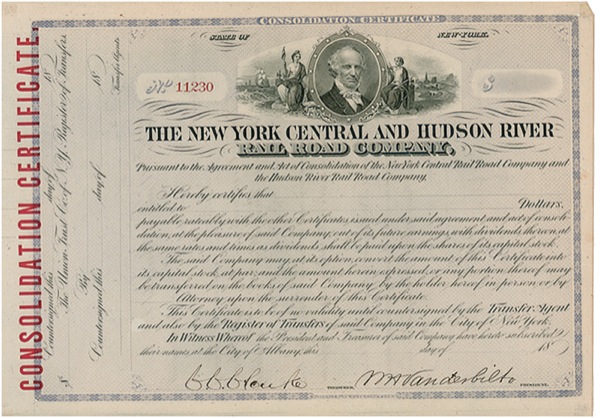 CONSOLIDATION CERTIFICATE
STATE OF NEW-YORK.
No 11230 $
THE NEW YORK CENTRAL AND HUDSON RIVER
RAIL ROAD COMPANY,
Pursuant to the Agreement and Act of Consolidation of the New York Central Rail Road Company and
the Hudson River Rail Road Company,
Hereby certifies that
entitled to Dollars,
payable rateably with the other Certificates issued under said agreement and act of consoli-
dation, at the pleasure of said Company, out of its future earnings, with dividends thereon, at
the same rates and times as dividends shall be paid upon the shares of its capital stock.
The said Company may, at its option, convert the amount of this Certificate into
its capital stock, at par, and the amount herein expressed, or any portion thereof may
be transferred on the books of said Company, by the holder hereof in person or by
Attorney upon the surrender of this Certificate.
This Certificate is to be of no validity until countersigned by the Transfer Agent
and also by the Register of Transfers of said Company in the City of New York.
In Witness Whereof the President and Treasurer of said Company have hereto subscribed
their names at the City of Albany, this day of 18
TREASURER. WH Vanderbilt
CONSOLIDATION CERTIFICATE.
Countersigned this day of 18
The Union Trust Co. of N.Y. Register of Transfers.
By
Countersigned this day of 18
Transfer Agent.
$